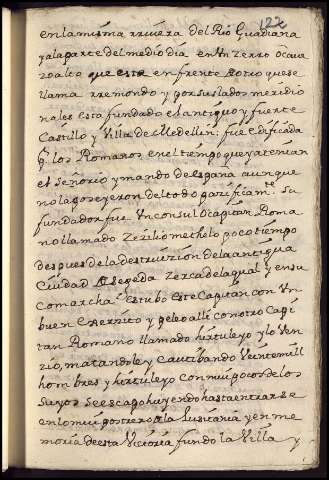 122
en la misma rriviera del Rio Guadiana
y a la parte del medio dia en Un zerro o cava
zo alto que esta en frente A otro que se
llama rremondo y por sus lados meridio
nales esta fundado el antiguo y fuerte
Castillo y Villa de Medellin: fue edificada
los Romanos en el tiempo que ya tenian
el Señorio y mando de españa aunque
no la poseyeron del todo pazificamte. Su
fundador fue Un consul o Capitan Roma
no llamado Zezilio methelo poco tiempo
despues de la destruizion de la antigua
Ciudad A segeda zerca de la qual y en su
comarcha Estubo este Capitan con Un
buen exerzito y peleo alli con otro Capi
tan Romano llamado hirtuleyo y lo Ven
zio, matandole y Cautibando Veinte mill
hombres y hirtuleyo con mui pocos de los
suyos se escapo huyendo hasta entrarse
en lo mui postrero A la Lusitania y en me
moria de esta Victoria fundo la Villa y